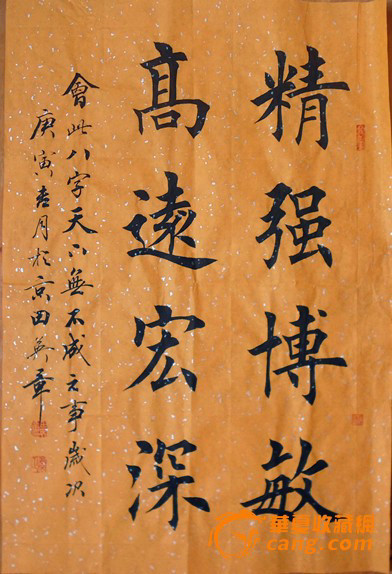 精强博敏
高遠宏深
會此八字天下無不成之事歲次
庚寅吉月於京田英章
華夏收藏網
cang.com